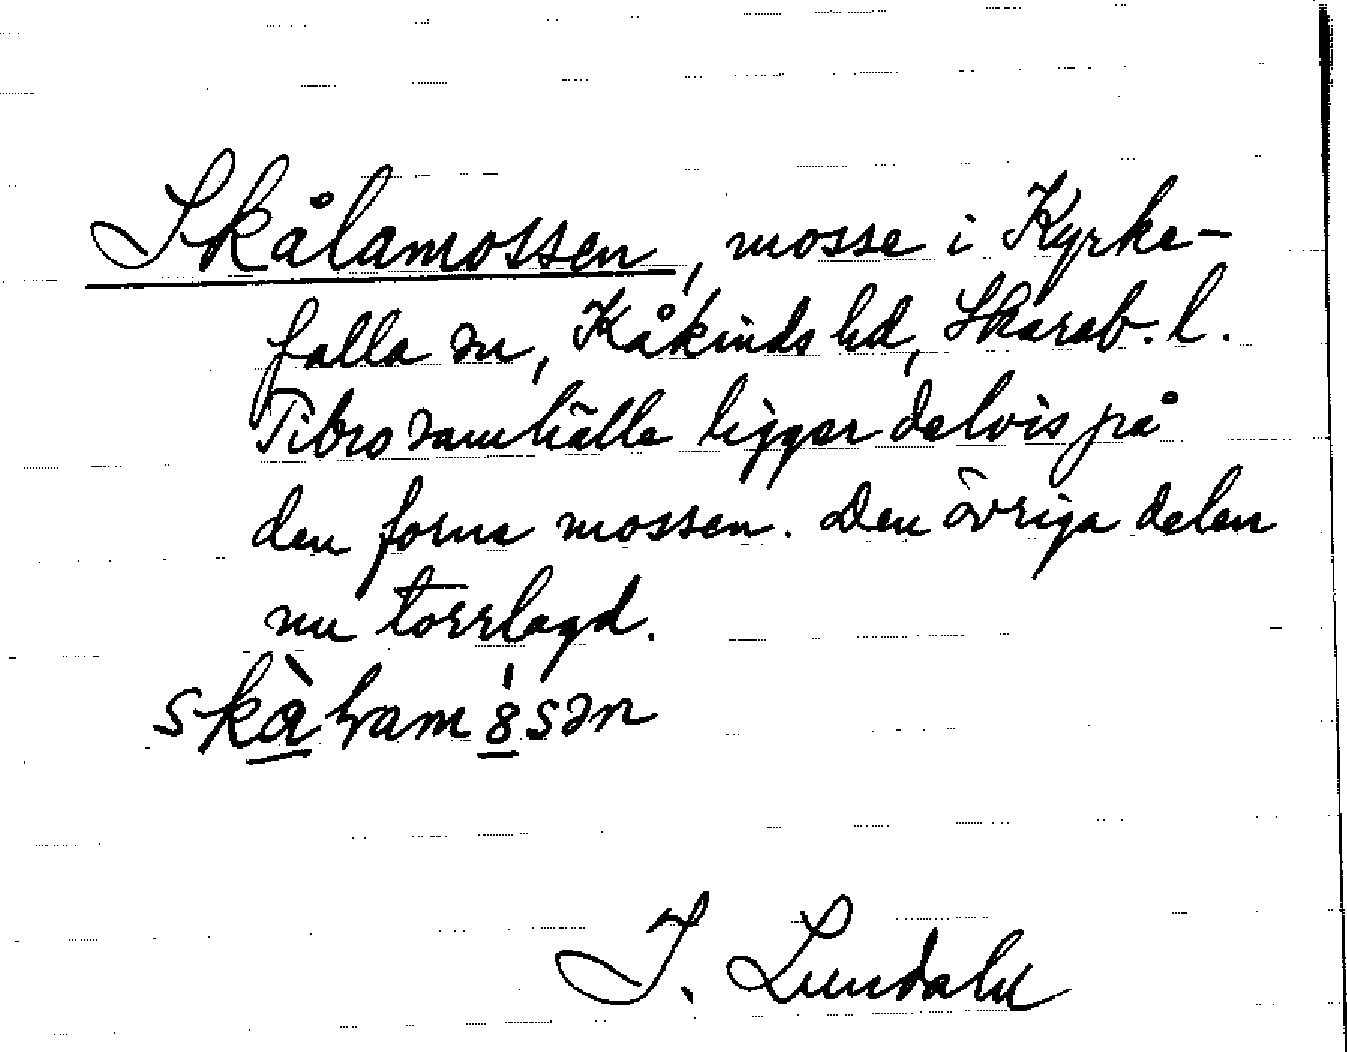 Skålamossen, mosse i Kyrke-
falla sn, Kåkinds hd, Skarab. l.
Tibro samhälle ligger delvis på
den forna mossen. Den övriga delen
nu torrlagd.
I. Lundahl